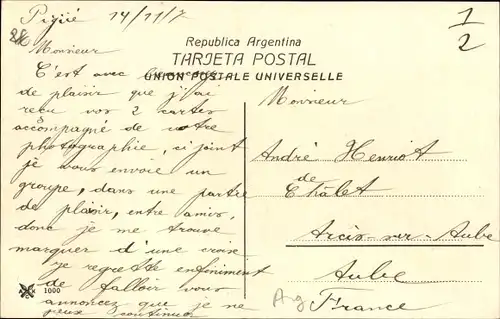 Pigüé 14/11/7
1/2
28
Republica Argentina
TARJETA POSTAL
UNION POSTALE UNIVERSELLE
Monsieur
C'est avec beaucoup
de plaisir que j'ai
recu vos 2 cartes
accompagné de votre
photographie, ci joint
je vous envoie un
groupe, dans une partie
de plaisir, entre amis,
donc je me trouve
marquer d'une croix
je regrette enfiniment
de falloir vous
annoncez que je ne
peux continuer
1000
Monsieur
André Henriot
de
Châlet
Arcis-sur-Aube
Aube
France
Arg